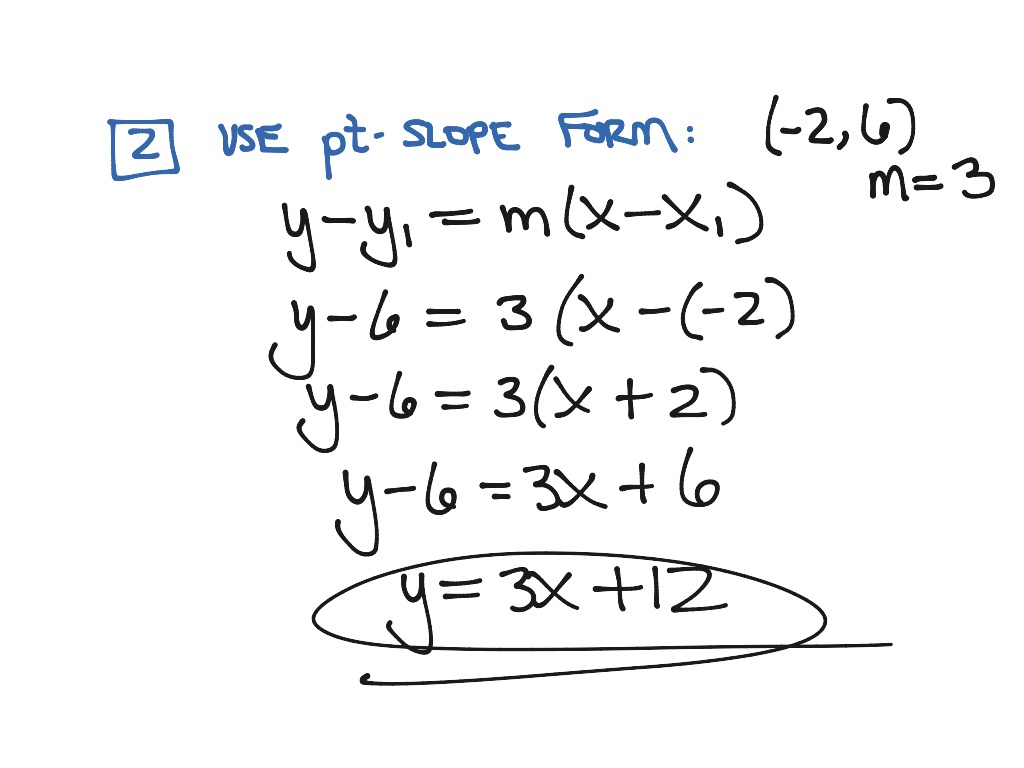 2 USE pt. SLOPE FORM: (-2, 6)
m = 3
y - y₁ = m(x - x₁)
y - 6 = 3 (x - (-2)
y - 6 = 3(x + 2)
y - 6 = 3x + 6
y = 3x + 12